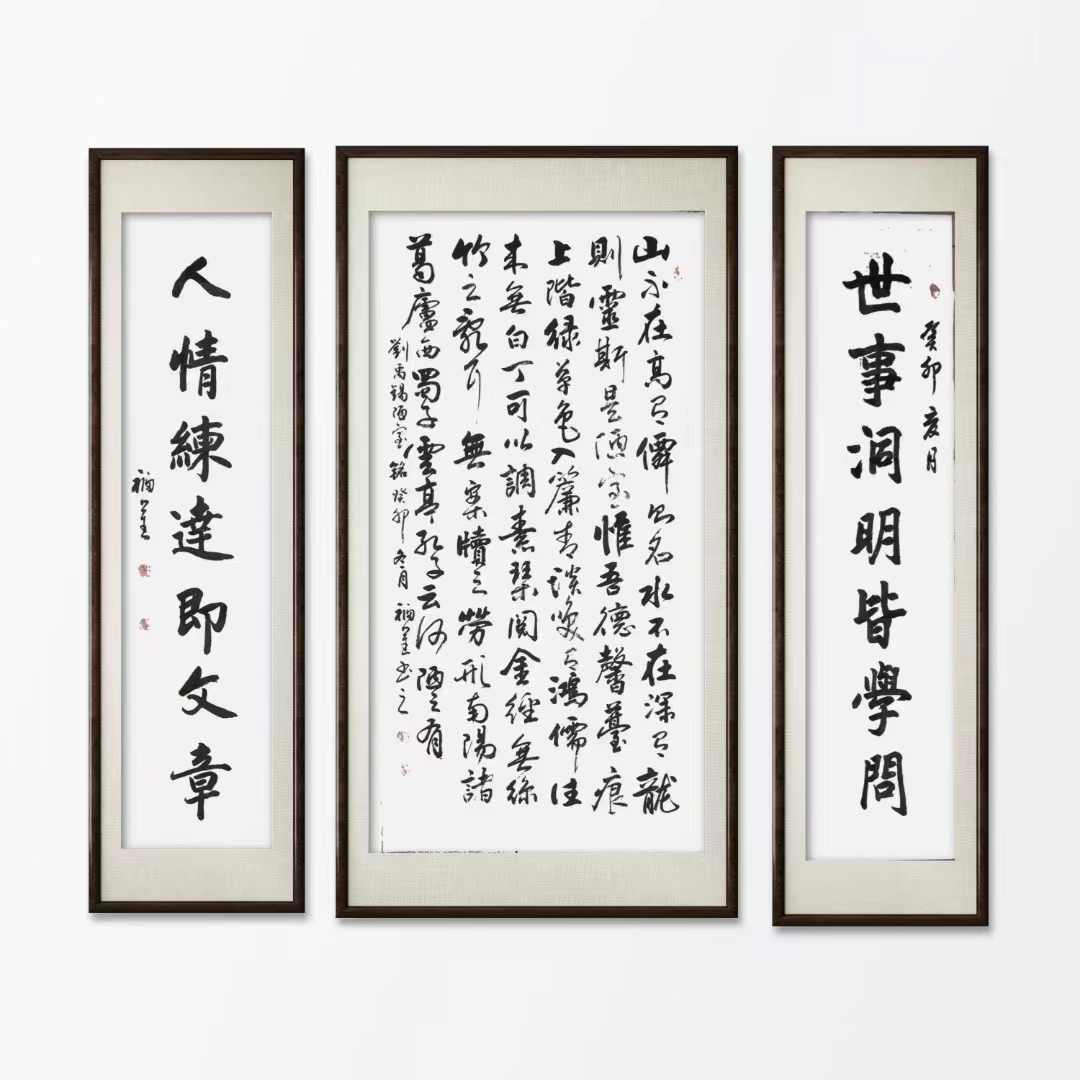 世事洞明皆學問
癸卯亥月
山不在高有僊則名水不在深有龍
則靈斯是陋室惟吾德馨薹痕
上階緑草色入簾青談笑有鴻儒往
來無白丁可以調素琴閱金經無絲
竹之亂耳無案牘之勞形南陽諸
葛廬西蜀子雲亭孔子云何陋之有
劉禹錫陋室銘癸卯冬月福書之
人情練達即文章
福